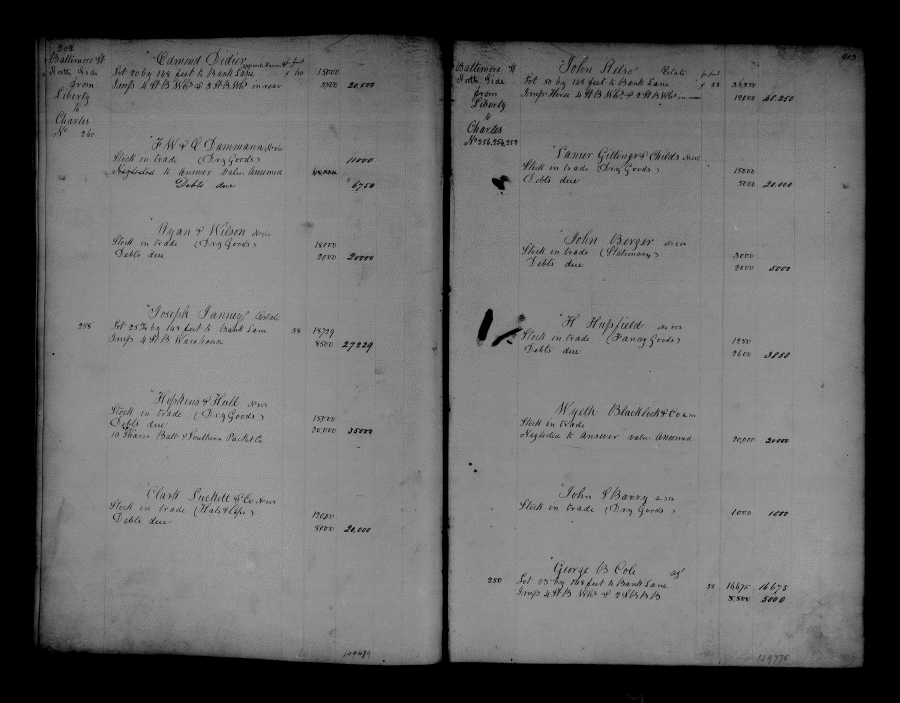 202
Baltimore St
North Side
from
Liberty
to
Charles
No 260
Edmond Didier
Lot 20 by 148 feet to Bank Lane 15000
Imps 4 St B Whs & 2 St B Whs in rear 20,000
F W & C Dammann
Stock in trade (Dry Goods) 11000
Neglected to answer value Assumed
Debts due 6750
Ryan & Wilson
Stock in trade (Dry Goods) 18000
Debts due 2000 20000
258
Joseph Janney Estate
Lot 25 by 148 feet to Bank Lane 58 18729
Imps 4 St B Warehouse 8500 27229
Hopkins & Hull
Stock in trade (Dry Goods) 15000
Debts due 20,000 35000
10 Shares Balt & Southern Packet Co
Clark Luckett & Co
Stock in trade (Hats & Caps) 12000
Debts due 8000 20,000
203
Baltimore St
North Side
from
Liberty
to
Charles
No 256, 254, 252
John Kelso Estate
Lot 50 by 148 feet to Bank Lane 58
Imps Three 4 St B Whs & 2 St B Whs in rear 48,250
Lanier Gittings & Childs
Stock in trade (Dry Goods) 15000
Debts due 5000 20,000
John Berger
Stock in trade (Stationary) 3000
Debts due 2000 5000
H Hupfield
Stock in trade (Fancy Goods) 1250
Debts due 2600 3850
Wyeth Blacklock & Co
Stock in trade
Neglected to Answer value Assumed 20,000 20000
John S Barry
Stock in trade (Dry Goods) 1000 1000
250
George B Cole agt
Lot by 148 feet to Bank Lane 16675 16675
Imps 4 St B Whs & 2 St B B 5000
119775